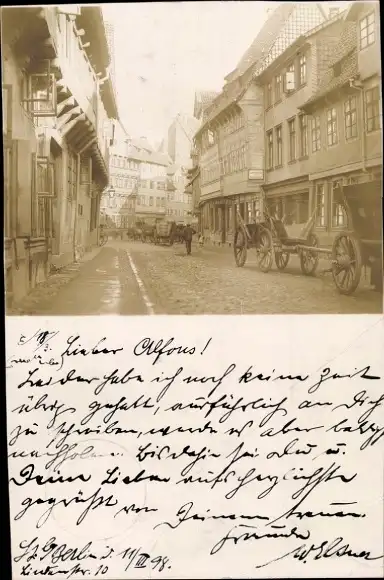 Lieber Alfons!
Leider habe ich noch keine Zeit
übrig gehabt, ausführlich an Dich
zu schreiben, werde es aber
nachholen. Bis dahin sei Du u.
Deine Lieben aufs herzlichste
gegrüßt von Deinem treuen
Freunde
Berlin d. 11/III 98. W. Elsner
Lindenstr. 10